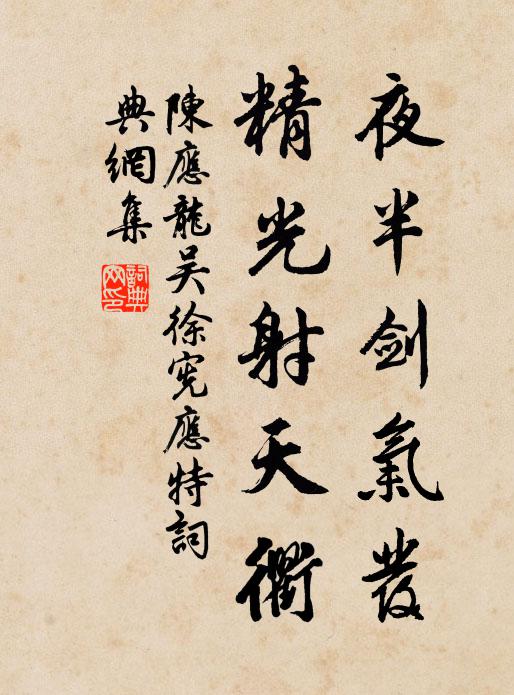 夜半剑氣發
精光射天衢
陳應龍吴徐宪應特詞
典網集
詞典網印